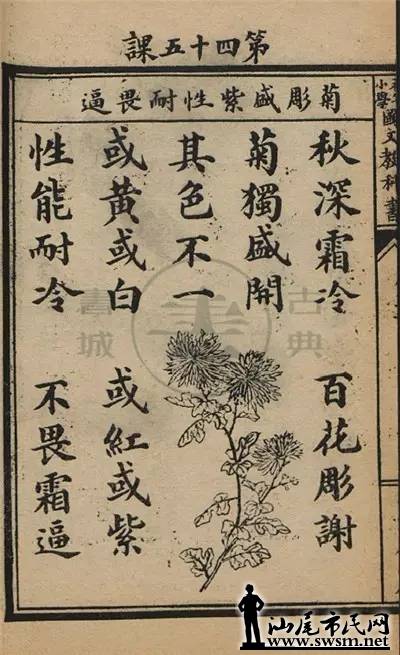 第四十五課
菊彫盛紫性耐畏逼
秋深霜冷　百花彫謝
菊獨盛開
其色不一
或黃或白　或紅或紫
性能耐冷　不畏霜逼
小學國文教科書
古典書城
汕尾市民网
www.swsm.net